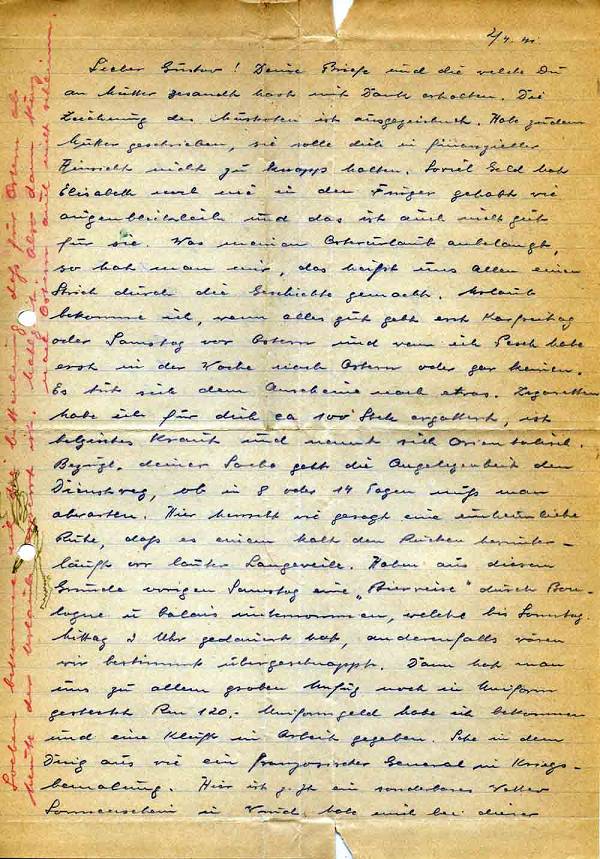 2/4.41.
Lieber Gustav! Deine Briefe und die welche Du
an Mutter gesandt hast mit Dank erhalten. Die
Zeichnung des ist ausgezeichnet. Habe zudem
Mutter geschrieben, sie solle dich in finanzieller
Hinsicht nicht zu knapp halten. Soviel Geld hat
Elisabeth noch nie in den Finger gehabt wie
augenblicklich und das ist auch nicht gut
für sie. Was meinen Osterurlaub anbelangt,
so hat man mir, das heißt uns allen einen
Strich durch die Geschichte gemacht. Urlaub
bekomme ich, wenn alles gut geht erst Karfreitag
oder Samstag vor Ostern und wenn ich Pech habe
erst in der Woche nach Ostern oder gar keinen.
Es tut sich dem Anscheine nach etwas. Zigaretten
habe ich für dich ca 100 Stck ergattert, ist
belgisches Kraut und nennt sich Orientalisch.
Bezügl. deiner Sache geht die Angelegenheit den
Dienstweg, ob in 8 oder 14 Tagen muß man
abwarten. Hier herrscht wie gesagt eine unheimliche
Ruhe, daß es einem kalt den Rücken herunter-
läuft vor lauter Langeweile. Haben aus diesem
Grunde vorigen Samstag eine „Bierreise" durch Bou-
logne u Calais unternommen, welche bis Sonntag
Mittag 2 Uhr gedauert hat, anderenfalls wären
wir bestimmt übergeschnappt. Dann hat man
uns zu allem groben Unfug noch in Uniform
gesteckt Rm 120.- Uniformgeld habe ich bekommen
und eine Kluft in Arbeit gegeben. Sehe in dem
Ding aus wie ein französischer General in Kriegs-
bemalung. Hier ist z. Zt ein sonderbares Wetter
Sonnenschein u Wind, habe mich bei dieser
Soeben bekomme ich die Mitteilung, daß für Ostern ab
heute der Urlaub gesperrt ist.